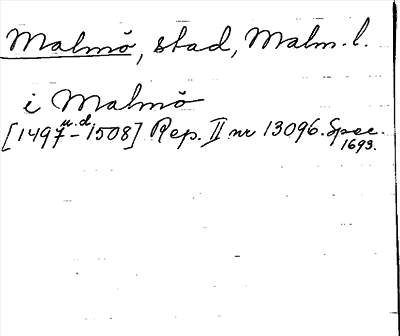 Malmö, stad, Malm. l.
i Malmö
u. d.
[1497 - 1508] Rep. II nr 13096. Spec.
1693.